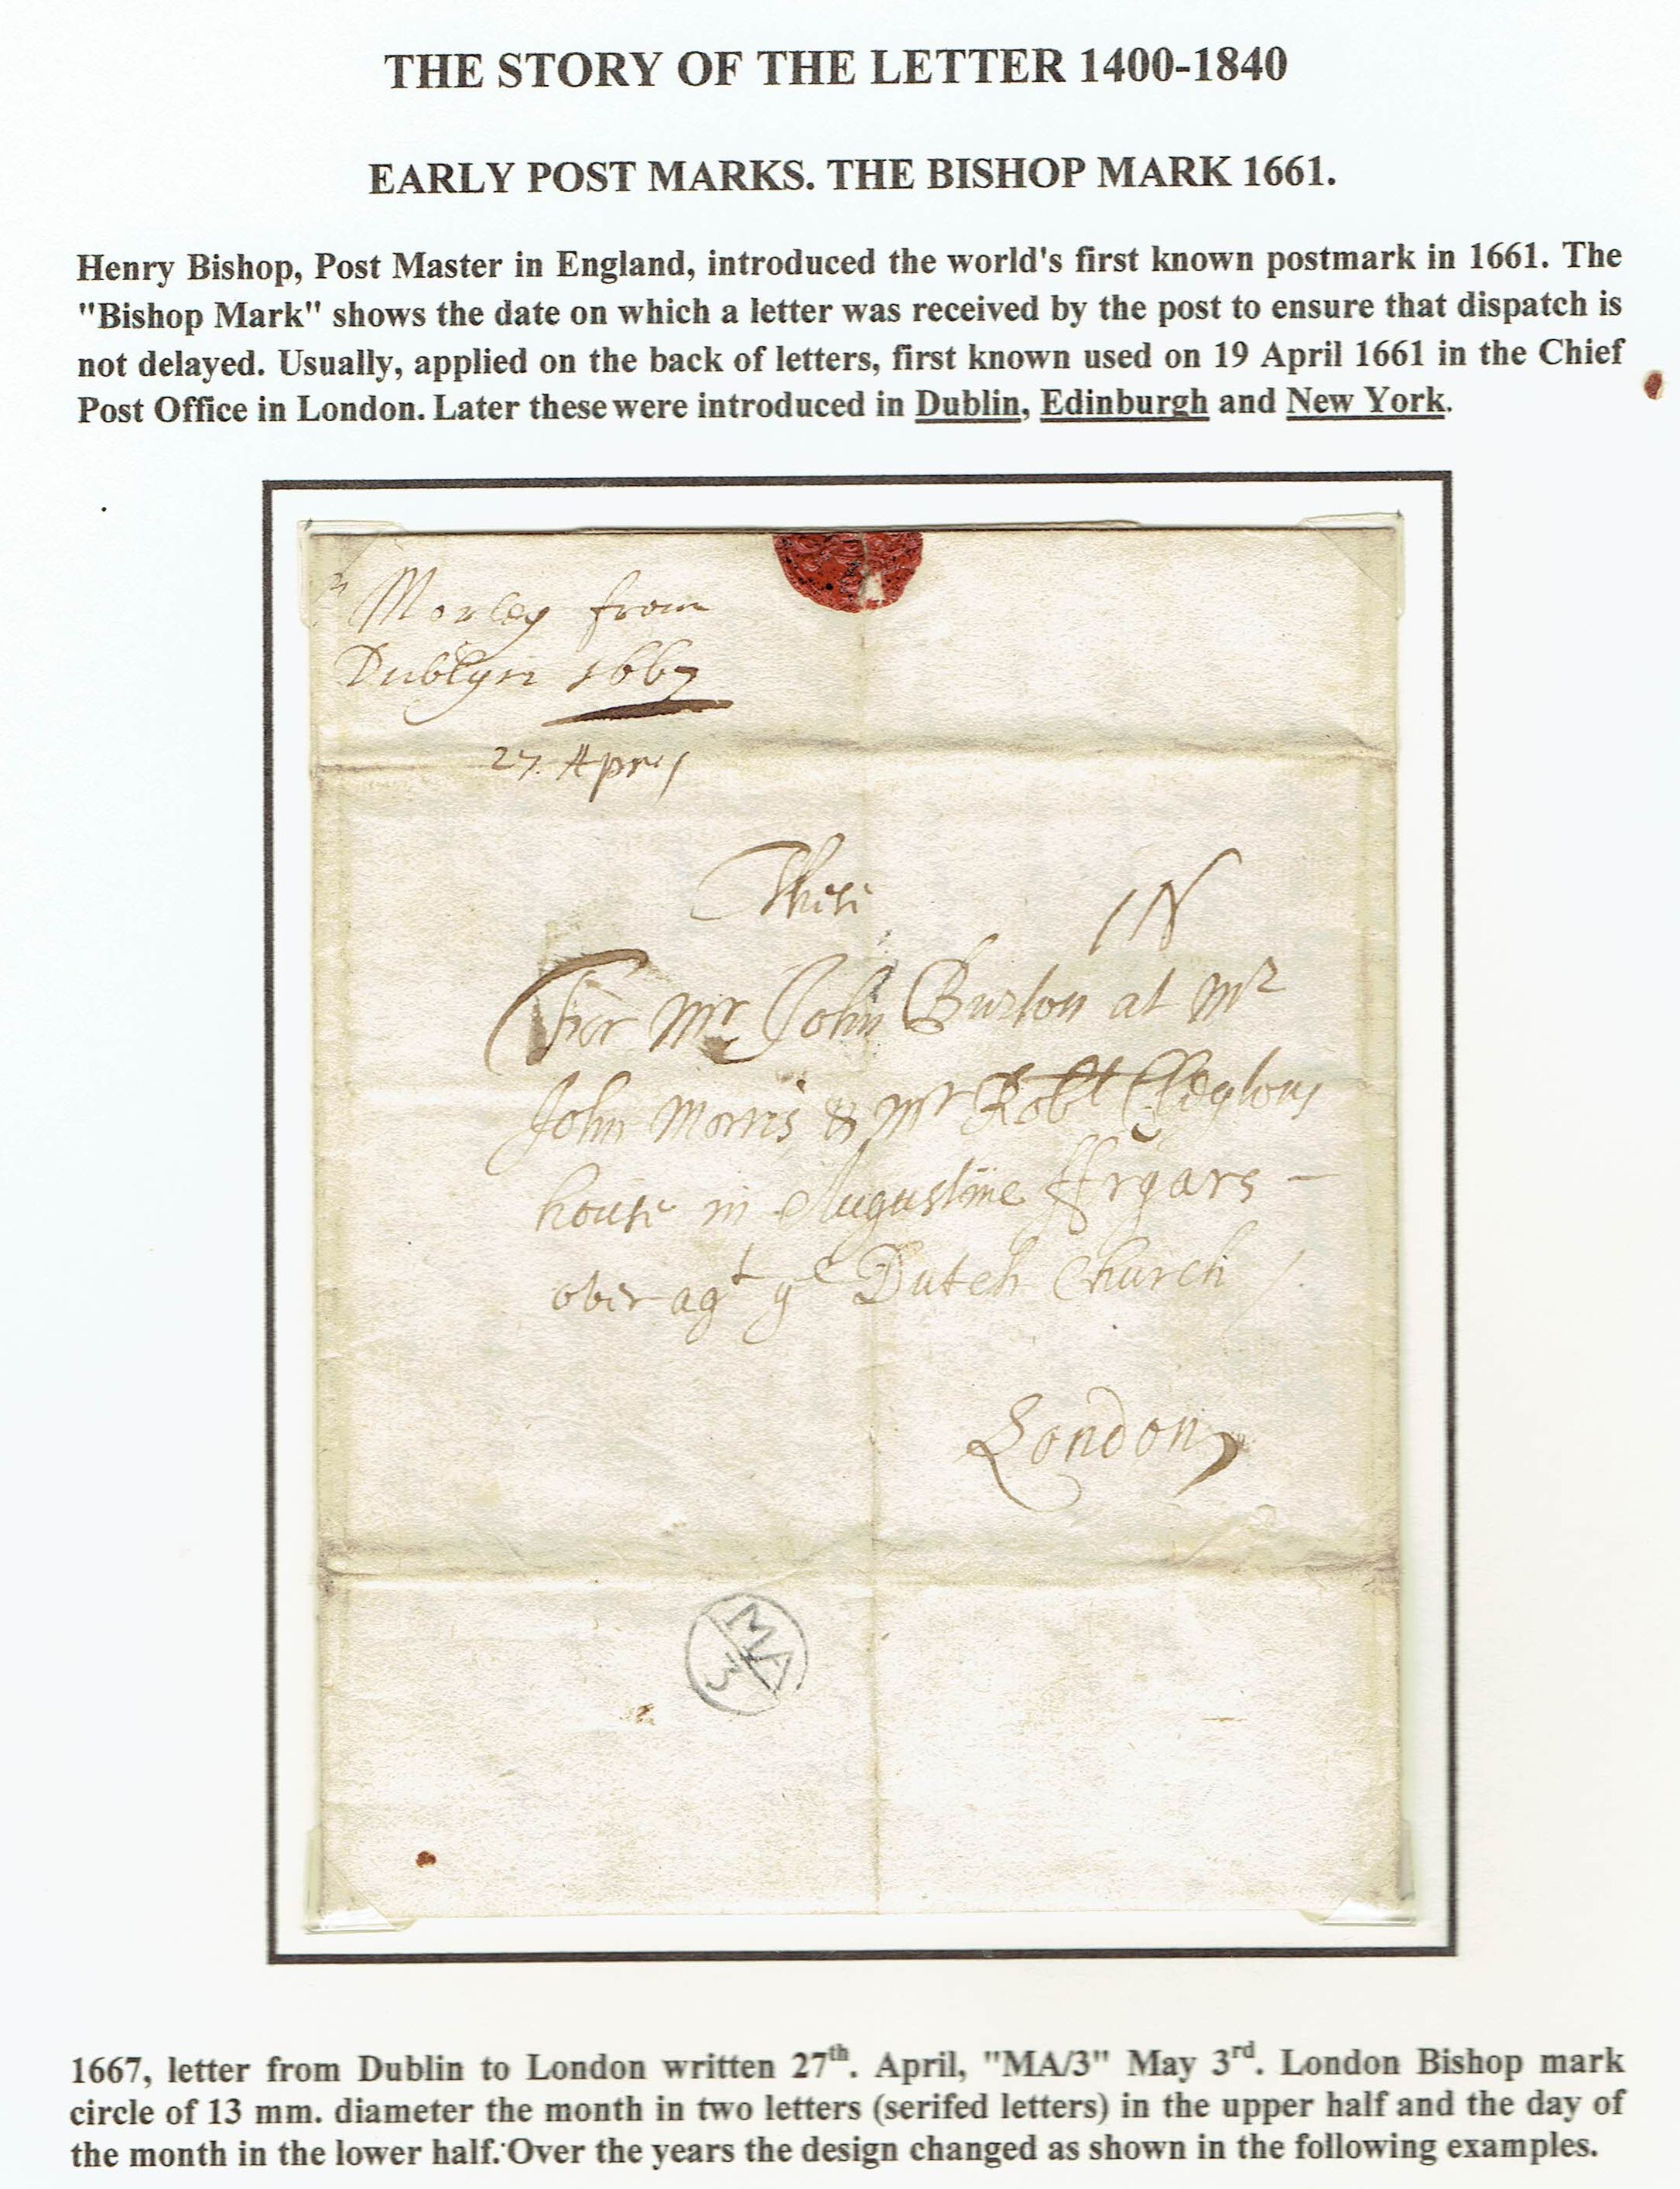 THE STORY OF THE LETTER 1400-1840
EARLY POST MARKS. THE BISHOP MARK 1661.
Henry Bishop, Post Master in England, introduced the world's first known postmark in 1661. The
"Bishop Mark" shows the date on which a letter was received by the post to ensure that dispatch is
not delayed. Usually, applied on the back of letters, first known used on 19 April 1661 in the Chief
Post Office in London. Later these were introduced in Dublin, Edinburgh and New York.
Morley from
Dublyn 1667
27. Apr
These
For Mr John Burton at Mr
John Morris & Mr Robt
house in Augustine ffryars -
over agt ye Dutch Church
London
MA
3
1667, letter from Dublin to London written 27th. April, "MA/3" May 3rd. London Bishop mark
circle of 13 mm. diameter the month in two letters (serifed letters) in the upper half and the day of
the month in the lower half. Over the years the design changed as shown in the following examples.